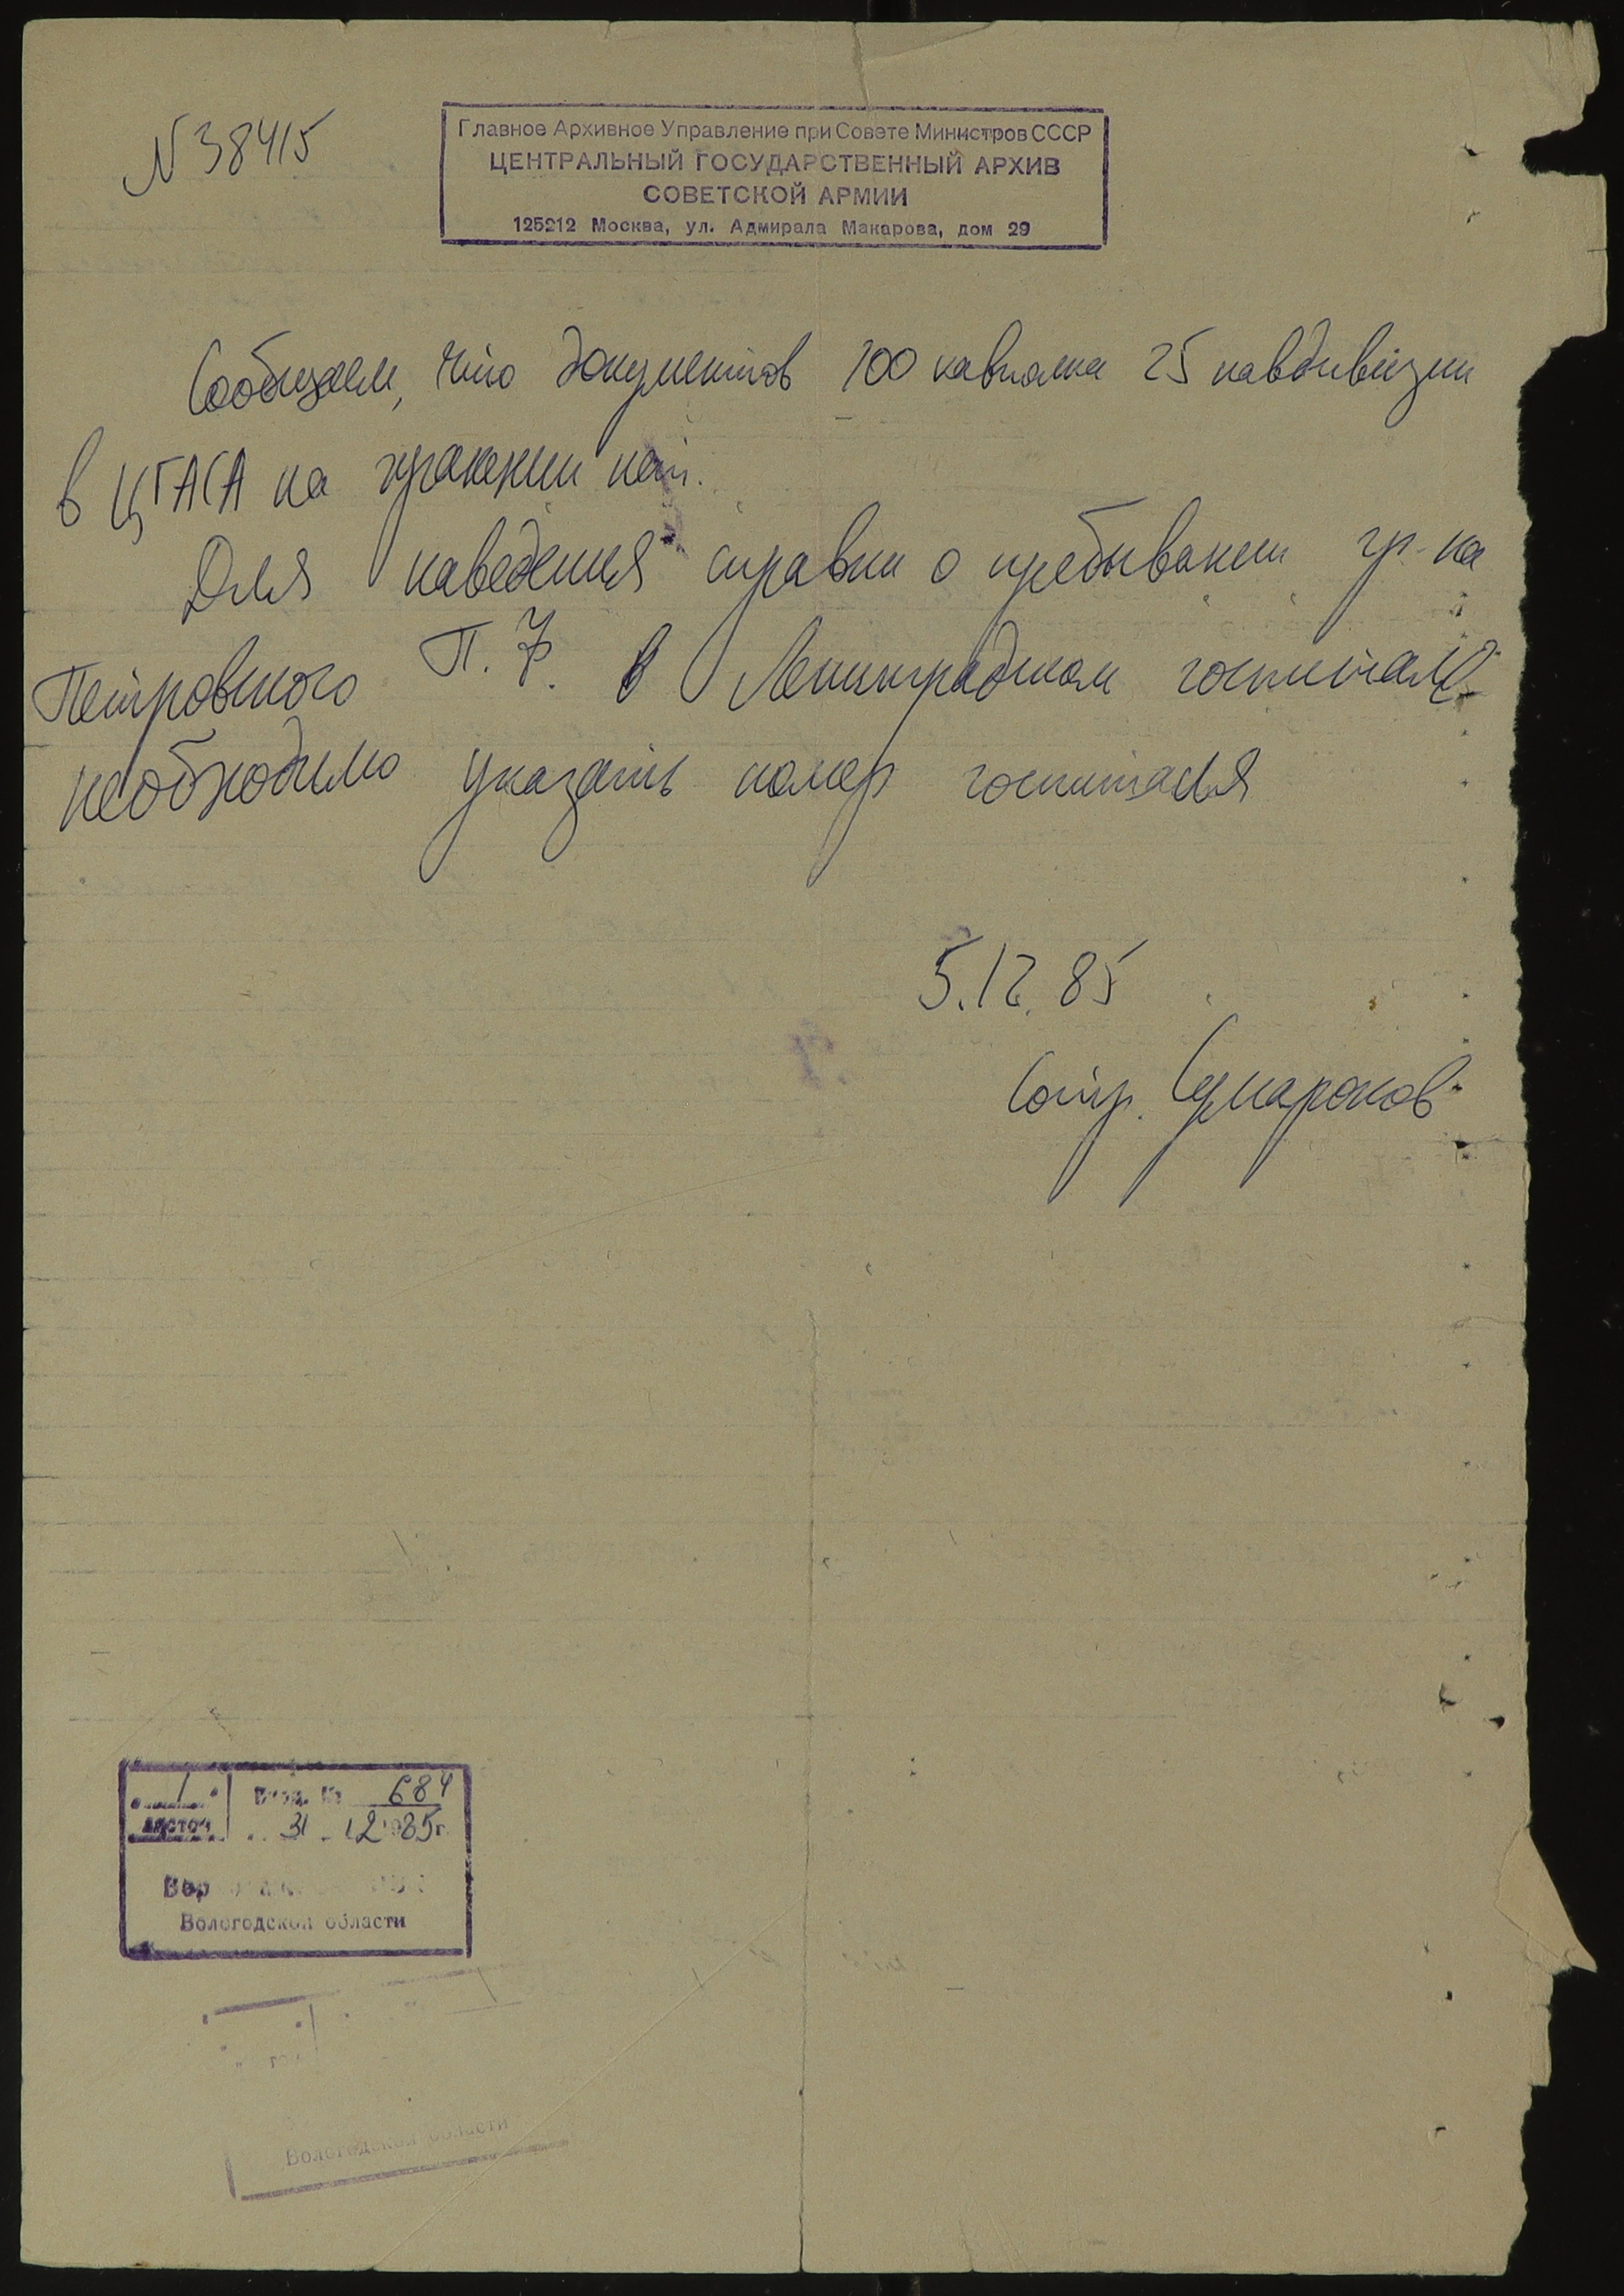 N 38415
Главное Архивное Управление при Совете Министров СССР
ЦЕНТРАЛЬНЫЙ ГОСУДАРСТВЕННЫЙ АРХИВ
СОВЕТСКОЙ АРМИИ
125212 Москва, ул. Адмирала Макарова, дом 29
Сообщаем, что документов 100 кавполка 25 кавдивизии
в ЦГАСА на хранении нет.
Для наведения справки о пребывании гр-на
Петровского П. Ф. в Ленинградском госпитале
необходимо указать номер госпиталя
5.12.85
Сотр. Сумароков
1 Вход. № 684
листов 31.12 1985г.
Вологодской области
Вологодской области